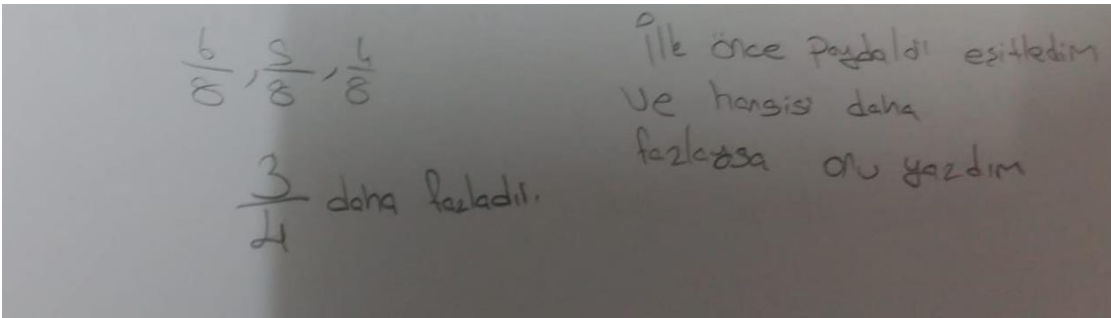 6/8, 5/8, 6/8
3/4 daha fazladır.
İlk önce paydaldı eşitledim
ve hangisi daha
fazlaysa onu yazdım